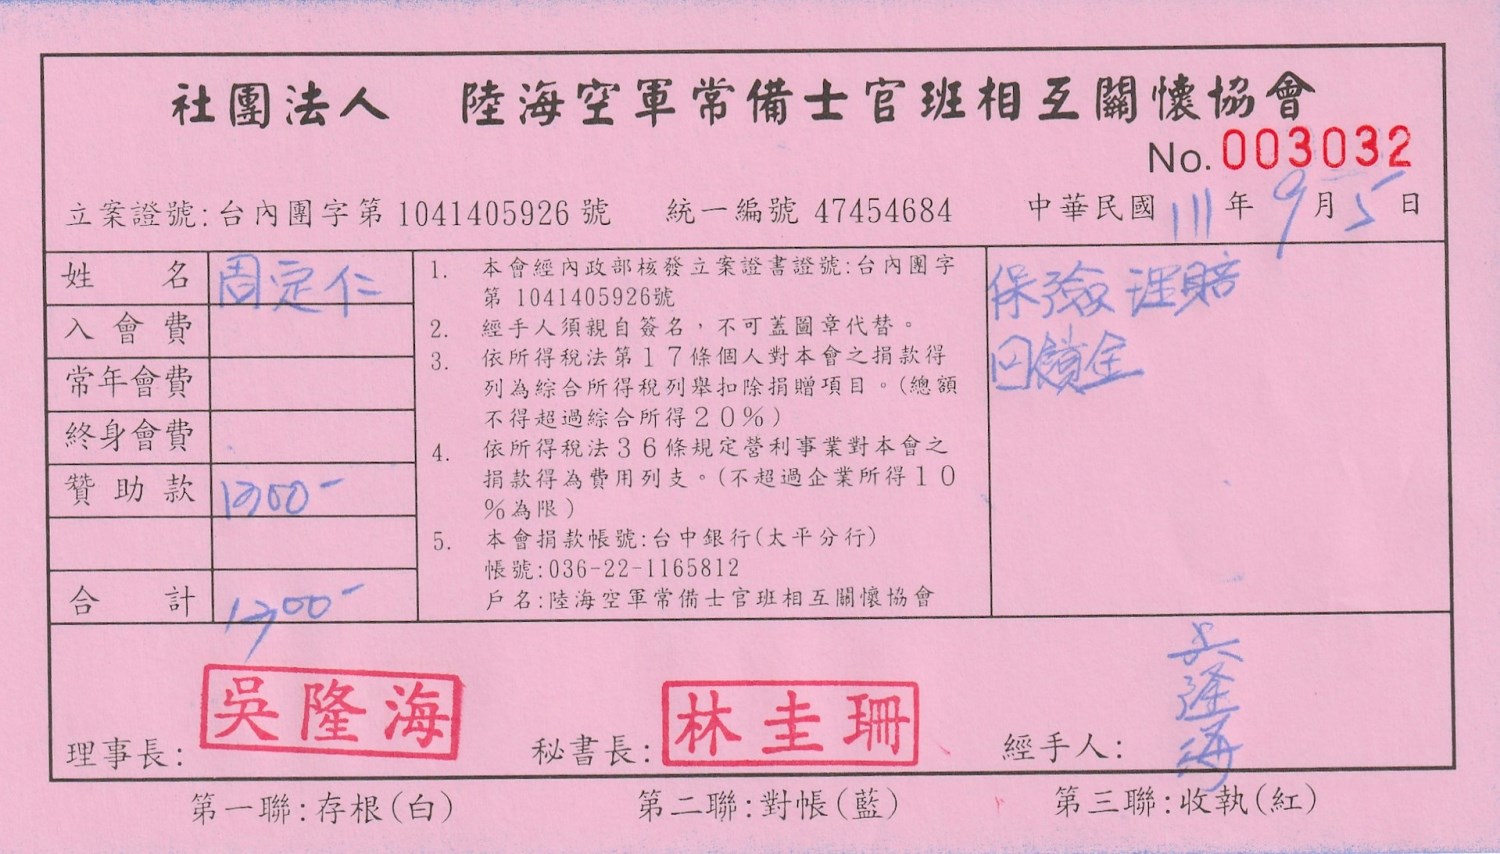 社團法人 陸海空軍常備士官班相互關懷協會
No.003032
立案證號:台內團字第1041405926號 統一編號 47454684 中華民國111年9月5日
姓名 周定仁
入會費
常年會費
終身會費
贊助款 1200-
合計 1200-
1. 本會經內政部核發立案證書證號:台內團字
第 1041405926號
2. 經手人須親自簽名，不可蓋圖章代替。
3. 依所得稅法第17條個人對本會之捐款得
列為綜合所得稅列舉扣除捐贈項目。(總額
不得超過綜合所得20%)
4. 依所得稅法36條規定營利事業對本會之
捐款得為費用列支。(不超過企業所得10
%為限)
5. 本會捐款帳號:台中銀行(太平分行)
帳號:036-22-1165812
戶名:陸海空軍常備士官班相互關懷協會
保險理賠
回饋金
理事長: 吳隆海 秘書長: 林圭珊 經手人: 吳隆海
第一聯:存根(白) 第二聯:對帳(藍) 第三聯:收執(紅)